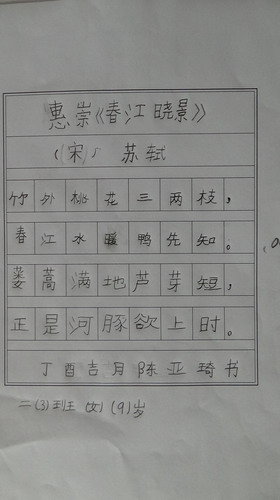 惠崇《春江晓景》
(宋) 苏轼
竹外桃花三两枝，
春江水暖鸭先知。
蒌蒿满地芦芽短，
正是河豚欲上时。
丁酉吉月陈亚琦书
二(3)班 (女) (9)岁